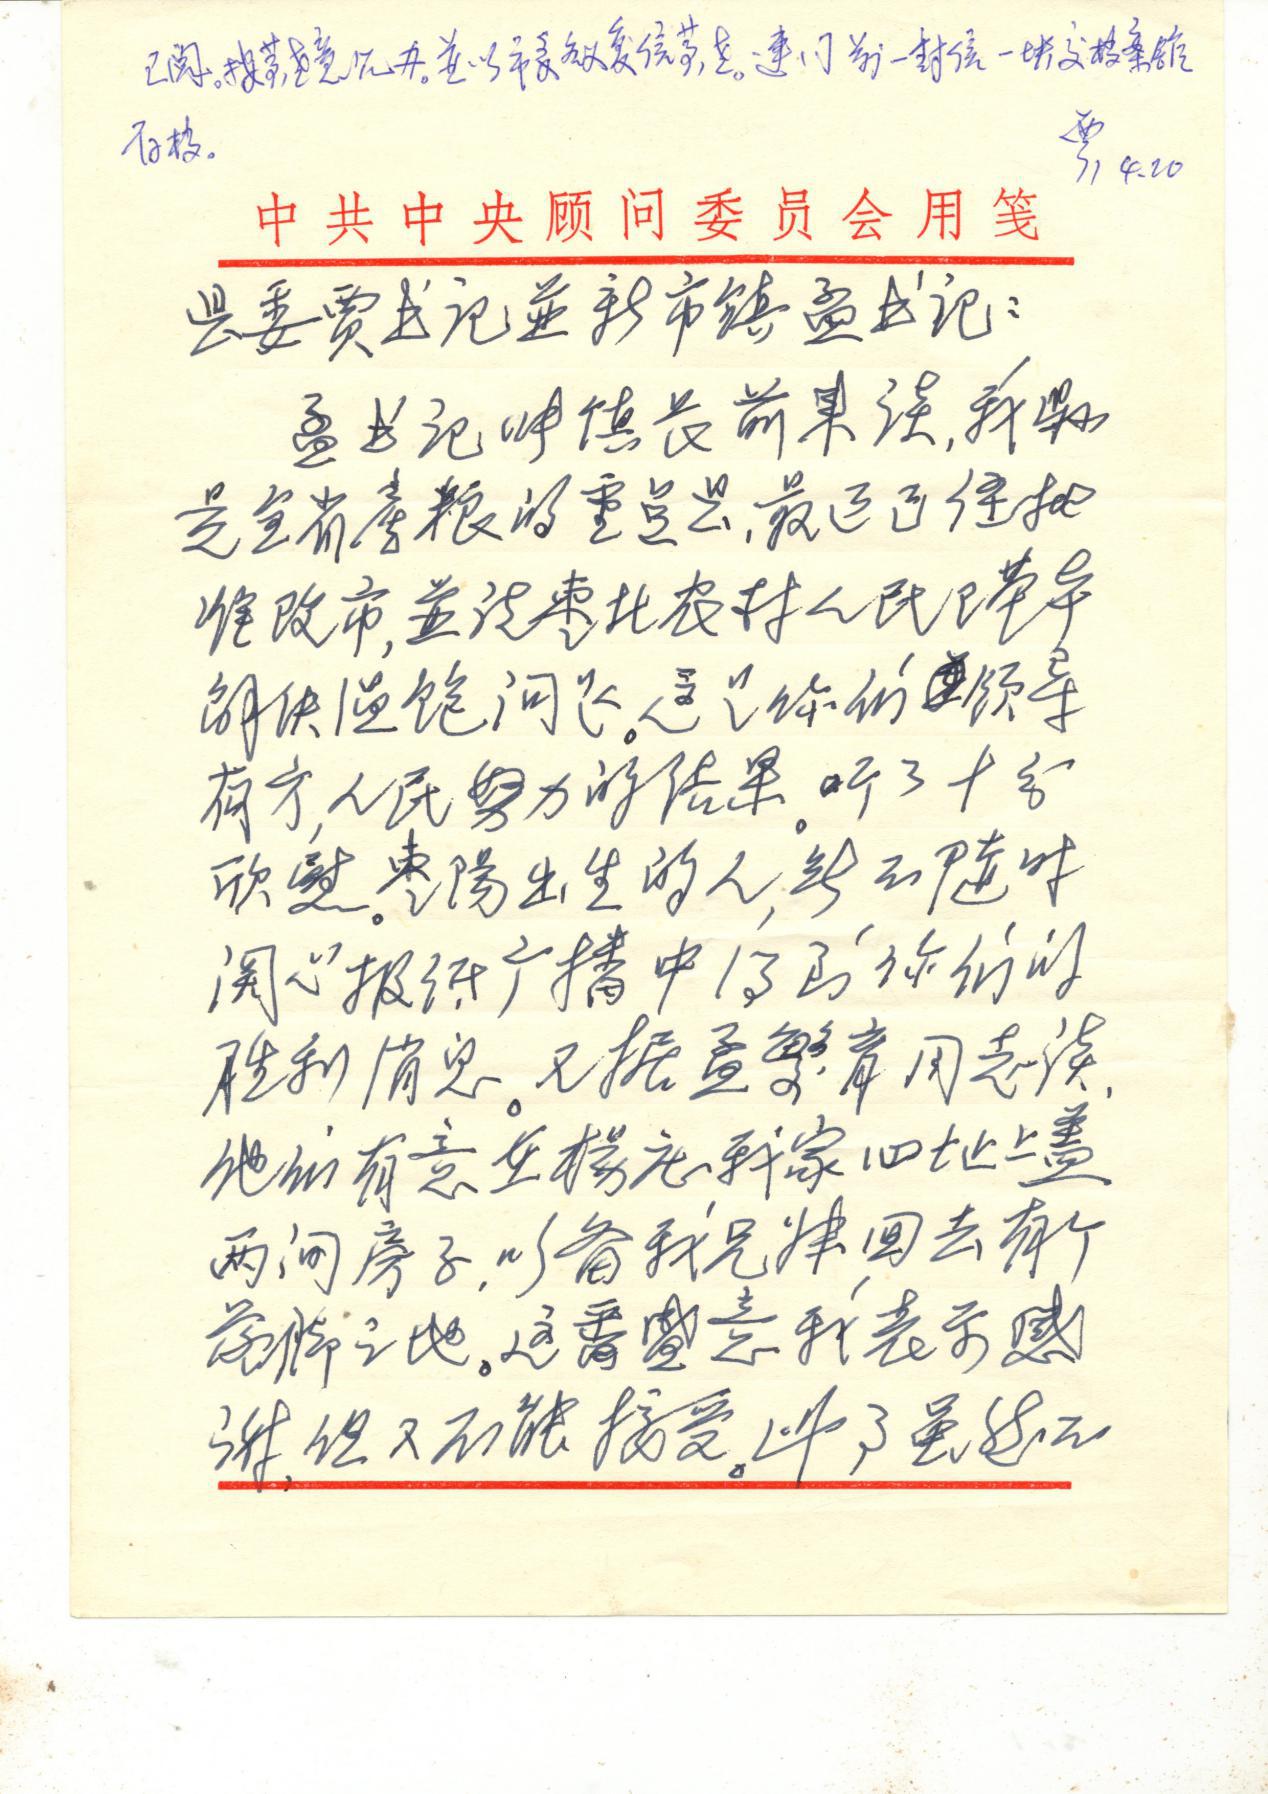 已阅。按黄老意见办。并以市委名义复信黄老。连同前一封信一块交档案馆
存档。
贾 4.20
中共中央顾问委员会用笺
县委贾书记並新市镇孟书记：
孟书记叶镇长前来谈，我县
是全省产粮的重点县，最近已经批
准改市，並说枣北农村人民已基本
解决温饱问题。这是你们领导
有方，人民努力的结果。听了十分
欣慰。枣陽出生的人，无不随时
関心报纸广播中得到你们的
胜利消息。又据孟繁育同志谈，
他们有意在杨庄我家旧址上盖
两间房子，以备我兄妹回去有个
落脚之地。这番盛意我表示感
谢，但又不能接受。此事虽然不